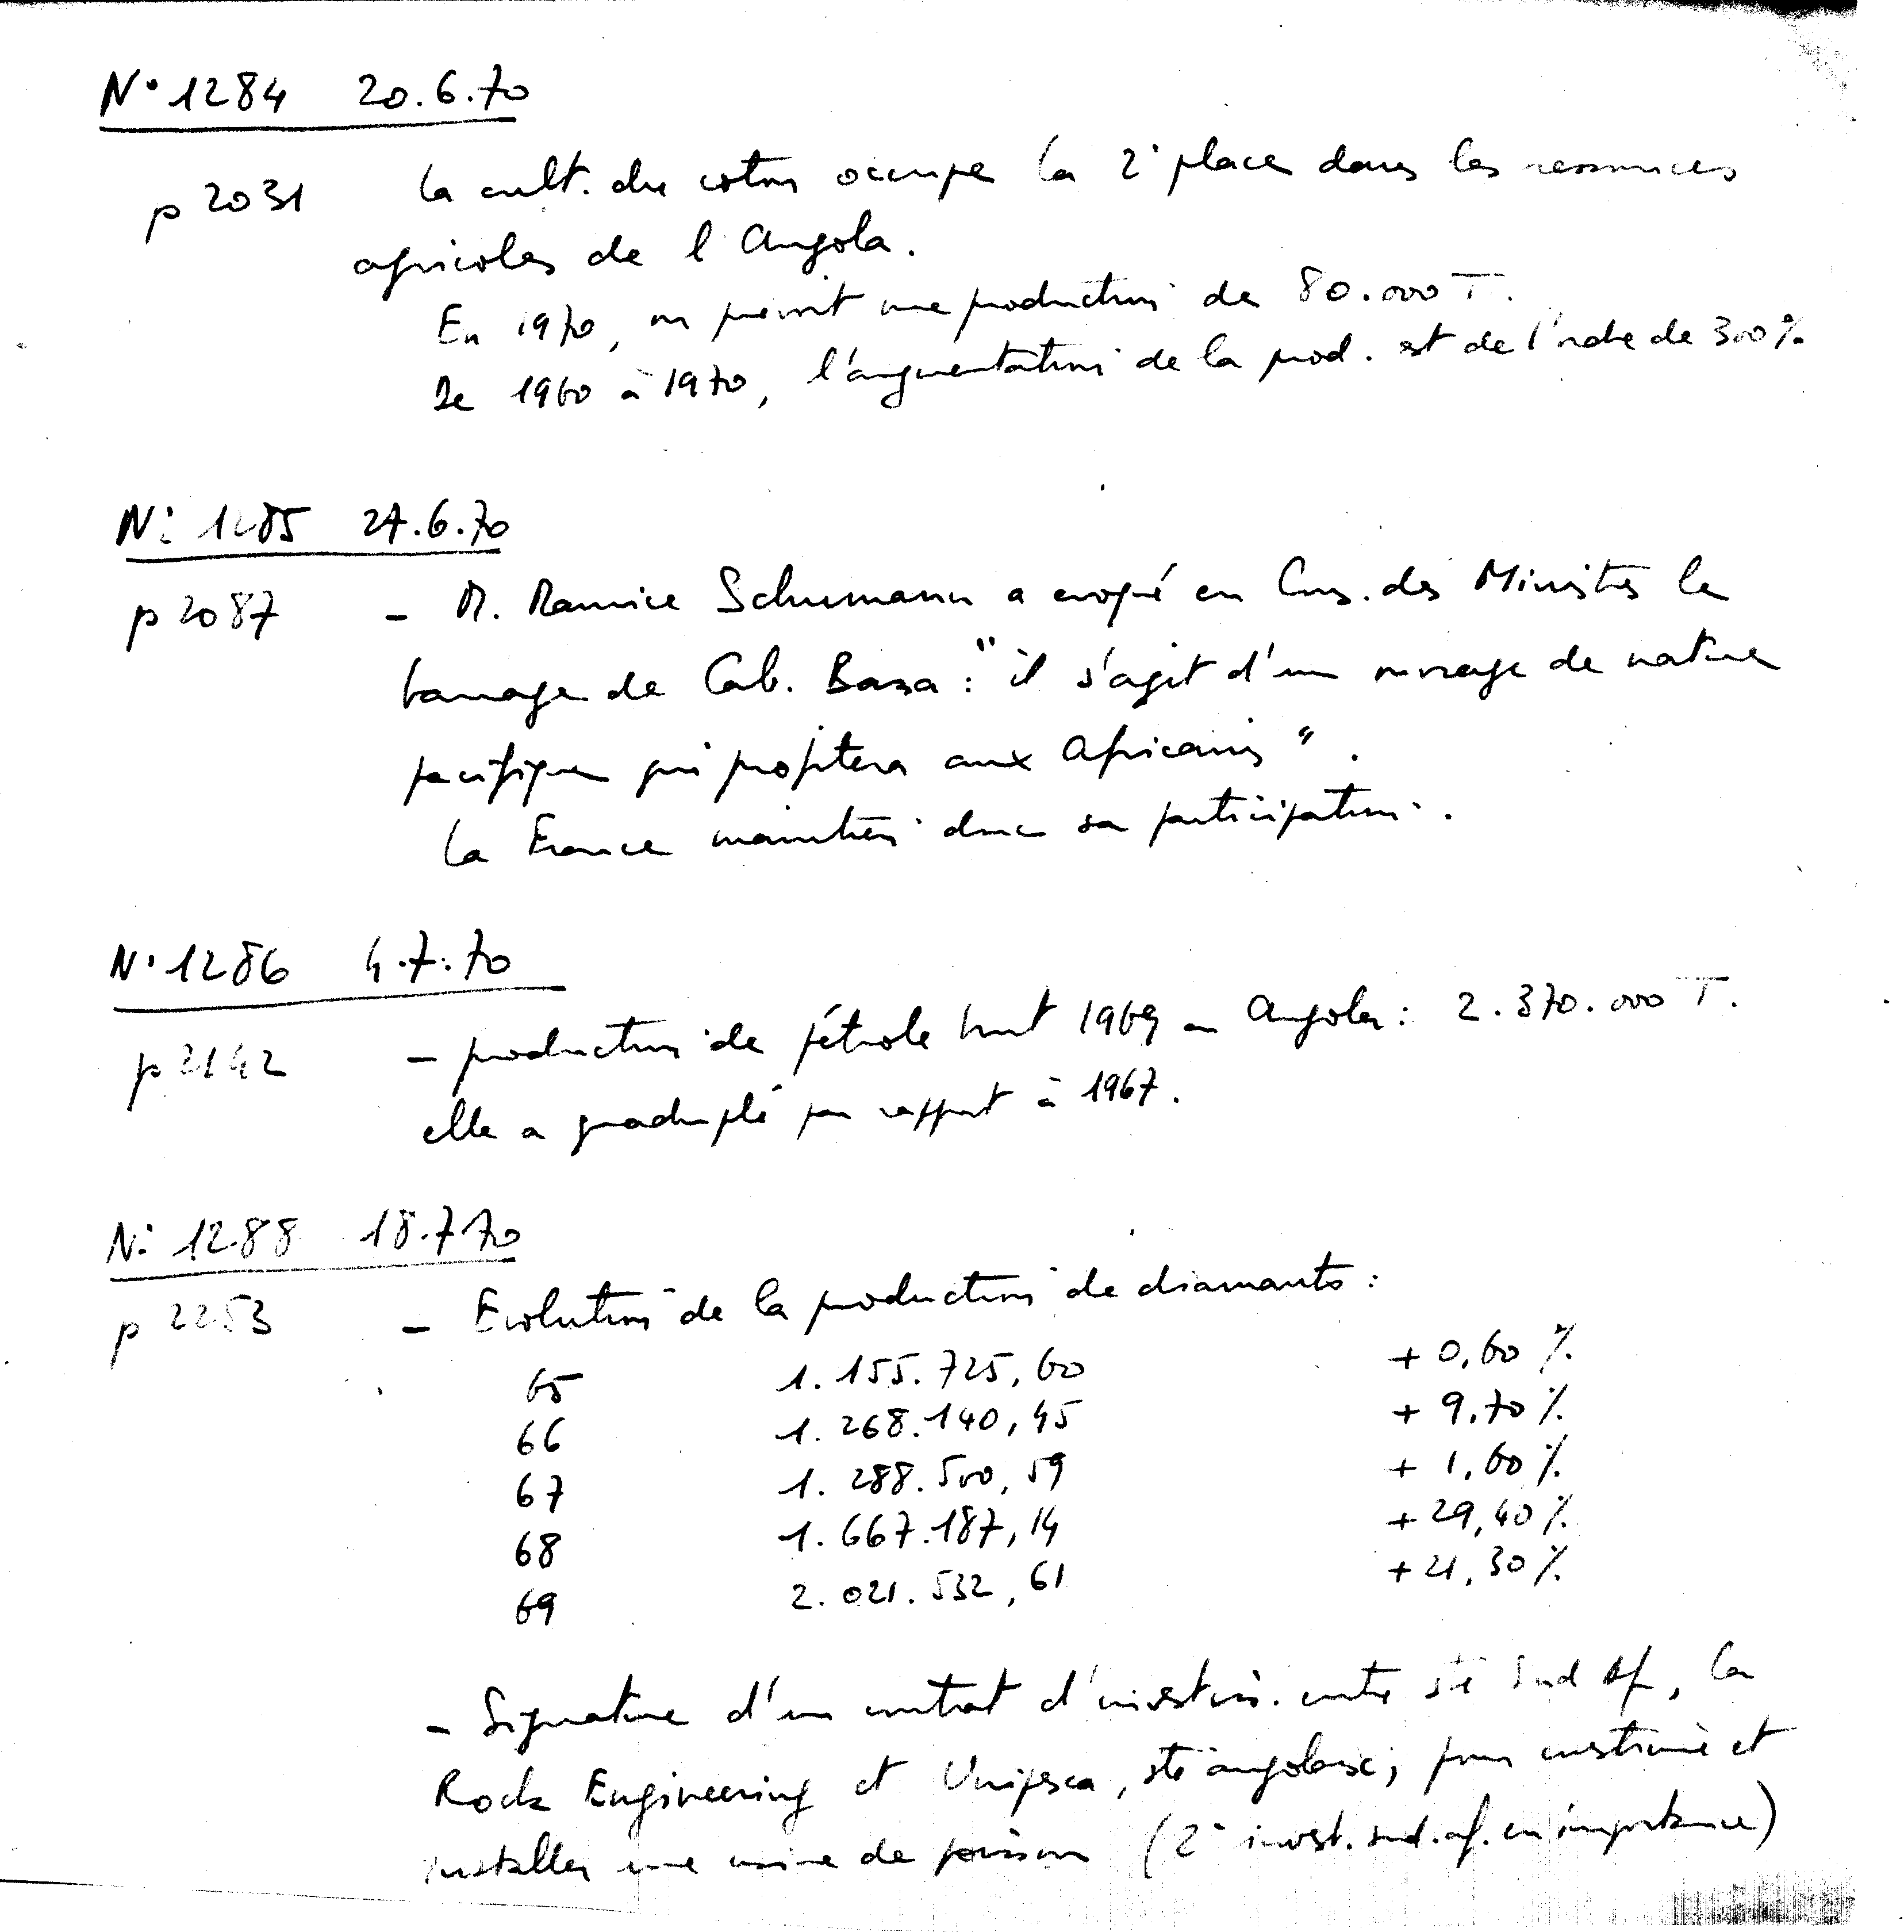 N° 1284 20.6.70
p 2031 La cult. du coton occupe la 2° place dans les ressources
agricoles de l'Angola.
En 1970, on prévoit une production de 80.000 T.
De 1960 à 1970, l'augmentation de la prod. est de l'ordre de 300 %
N° 1285 27.6.70
p 2087 - M. Maurice Schumann a évoqué en Cons. des Ministres le
barrage de Cab. Bassa : "il s'agit d'un ouvrage de nature
pacifique qui profitera aux Africains".
La France maintien donc sa participation.
N° 1286 4.7.70
p 2142 - production de pétrole brut 1969 en Angola : 2.370.000 T.
elle a quadruplé par rapport à 1967.
N° 1288 18.7.70
p 2253 - Evolution de la production de diamants :
65 1.155.725,60 + 0,60 %
66 1.268.140,45 + 9,70 %
67 1.288.500,59 + 1,60 %
68 1.667.187,14 + 29,40 %
69 2.021.532,61 + 21,30 %
- Signature d'un contrat d'investiss. entre sté Sud Af, la
Rock Engineering et Unipesca, sté angolaise, pour construire et
installer une usine de poisson (2° invest. sud.af. en importance)